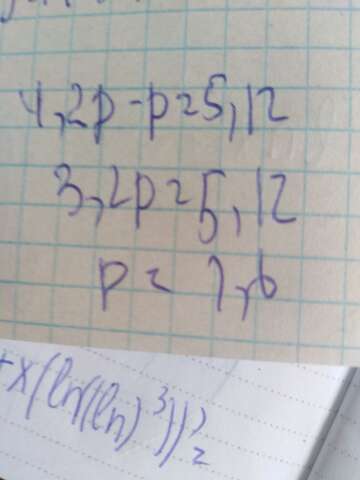 4,2p-p=5,12
3,2p=5,12
p=1,6
+x(ln((ln)³))'=